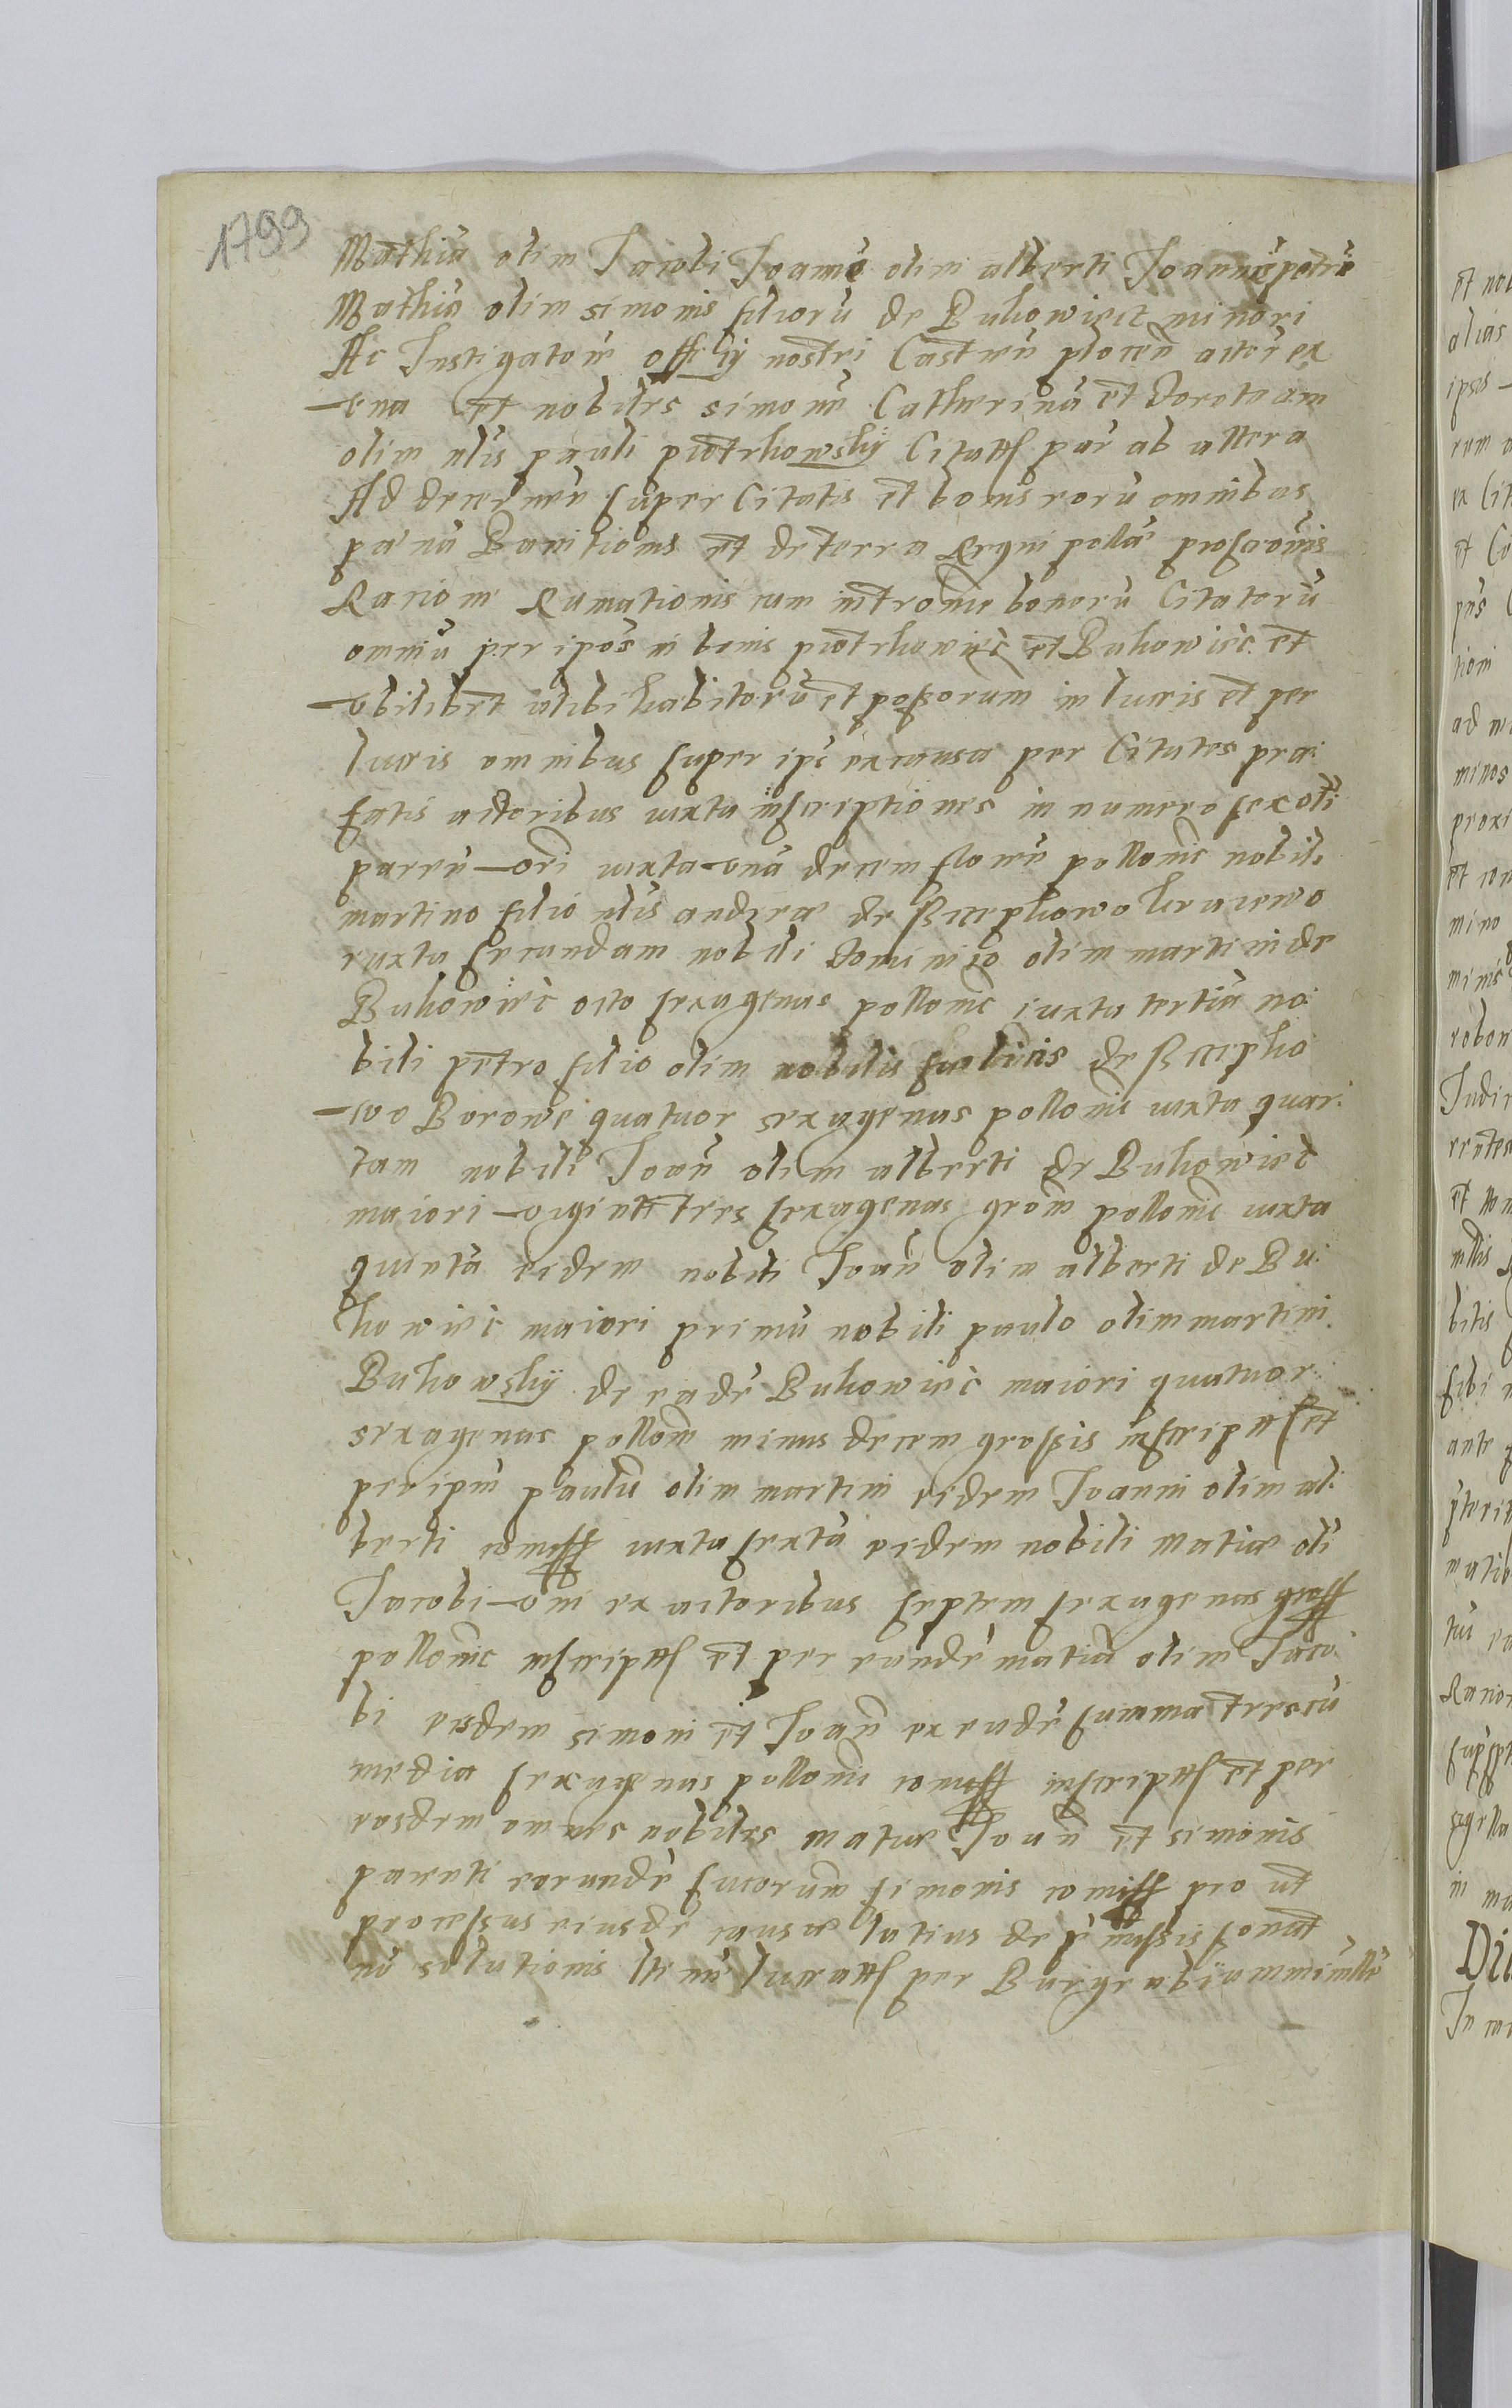 1799
Mathiā olim Jacobi Joannē olim alberti Joannē petrū
Mathiā olim simonis filiorū de Bukowiecz minori
Ac Instigatorē officij nostri Castren plocen actor ex
vna et nobiles simonē Catherinā et Doroteam
olim nlis pauli piotrkowskÿ Citatos par ab altera
Ad decernen super Citatis et bonis eorū omnibus
pænā Banitionis et de terra Regni pollæ proscriōnis
Racione Rumationis cum introm̄e bonorū Citatorū
omniū per ipōs in bonis piotrkowiec et Bukowiec et
vbilibet alibi habitorū et possorum in lucris et per
lucris omnibus super ips̄ excausa per Citatos præ:
fatis actoribus iuxta inscriptiones in numero sex oli
parrū iuxta vnā decem floren pollonic nobili
martino filio nlis andreæ de Szczepkowo
iuxta secundam nobili Dominico olim martini de
Bukowiec octo sexagenas pollonic iuxta tertiā no:
bili petro filio olim nobilis felicis de Szczepko
wo Borowe quatuor sexagenas pollonic iuxta quar:
tam nobili Joan̄ olim alberti de Bukowiec
maiori viginti tres sexagenas grom pollonic iuxta
quintā eidem nobili Joan̄ olim alberti de Bu:
kowiec maiori primū nobili paulo olim martini
Bukowskÿ de eadē Bukowiec maiori quatuor
sexagenas pollon̄ minus decem grossis inscriptas et
per ipm̄ paulū olim martini eidem Joanni olim al:
berti comiss iuxta sextā eidem nobili Matiæ oli
Jacobi vni ex actoribus septem sexagenas gross
pollonic inscriptas et per eundē matiā olim Jaco:
bi eisdem simoni et Joan̄ ex eadē summa tres cū
media sexagenas pollonic comiss inscriptas et per
eosdem omnes nobiles matiæ Joan̄ et simonis
parenti eorundē sucorum simonis comiss pro ut
processus eiusdē causæ latius de p̄missis sonat
nō solutionis lucratas per Burgrabiam